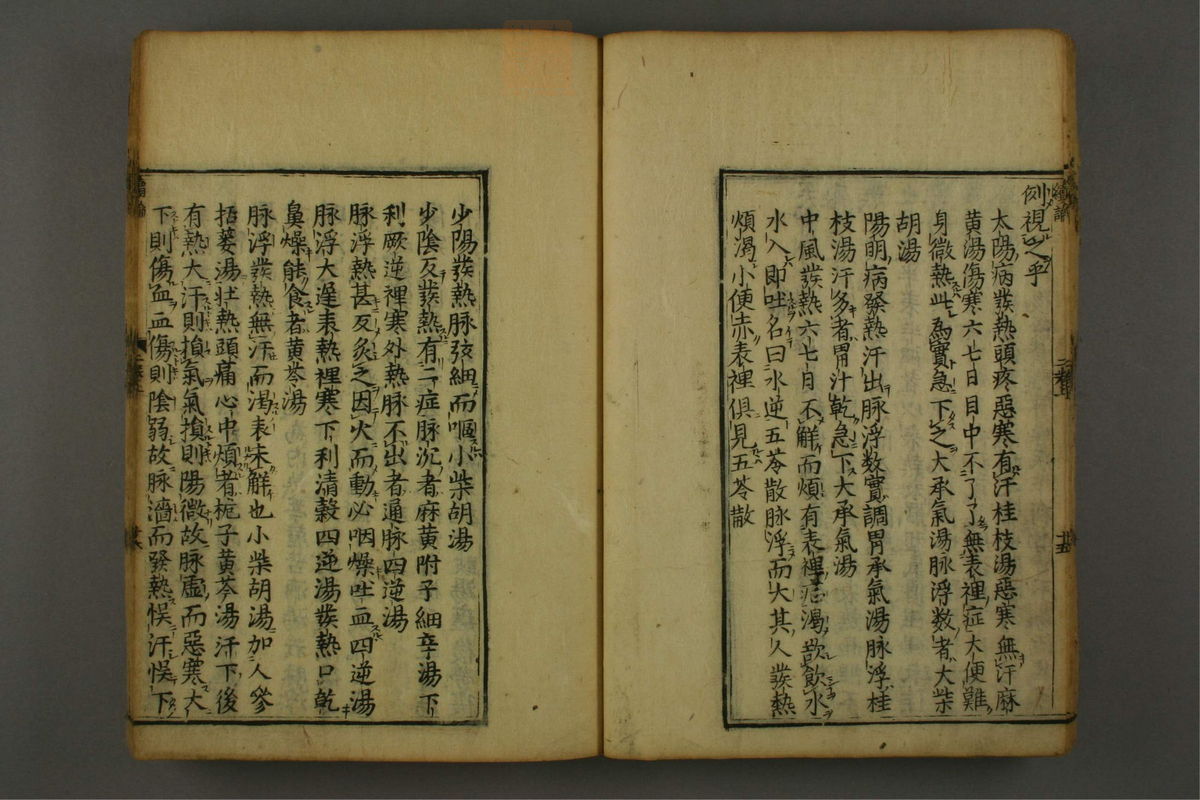 例視之乎
太陽病發熱頭疼惡寒有汗桂枝湯惡寒無汗麻
黃湯傷寒六七日目中不了了無表裡症大便難
身微熱此為實急下之大承氣湯脉浮数者大柴
胡湯
陽明病發熱汗出脉浮数實調胃承氣湯脉浮桂
枝湯汗多者胃汁乾急下大承氣湯
中風發熱六七日不解而煩有表裡症渴欲飲水
水入即吐名曰水逆五苓散脉浮而大其人發熱
煩渴小便赤表裡俱見五苓散
少陽發熱脉弦細而嘔小柴胡湯
少陰反發熱有二症脉沉者麻黃附子細辛湯下
利厥逆裡寒外熱脉不出者通脉四逆湯
脉浮熱甚反灸之因火而動必咽燥吐血四逆湯
脉浮大遲表熱裡寒下利清穀四逆湯發熱口乾
鼻燥能食者黃芩湯
脉浮發熱無汗而渴表未解也小柴胡湯加人參
栝蔞湯壯熱頭痛心中煩者梔子黃芩湯汗下後
有熱大汗則損氣氣損則陽微故脉虛而惡寒大
下則傷血血傷則陰弱故脉濇而發熱悞汗悞下